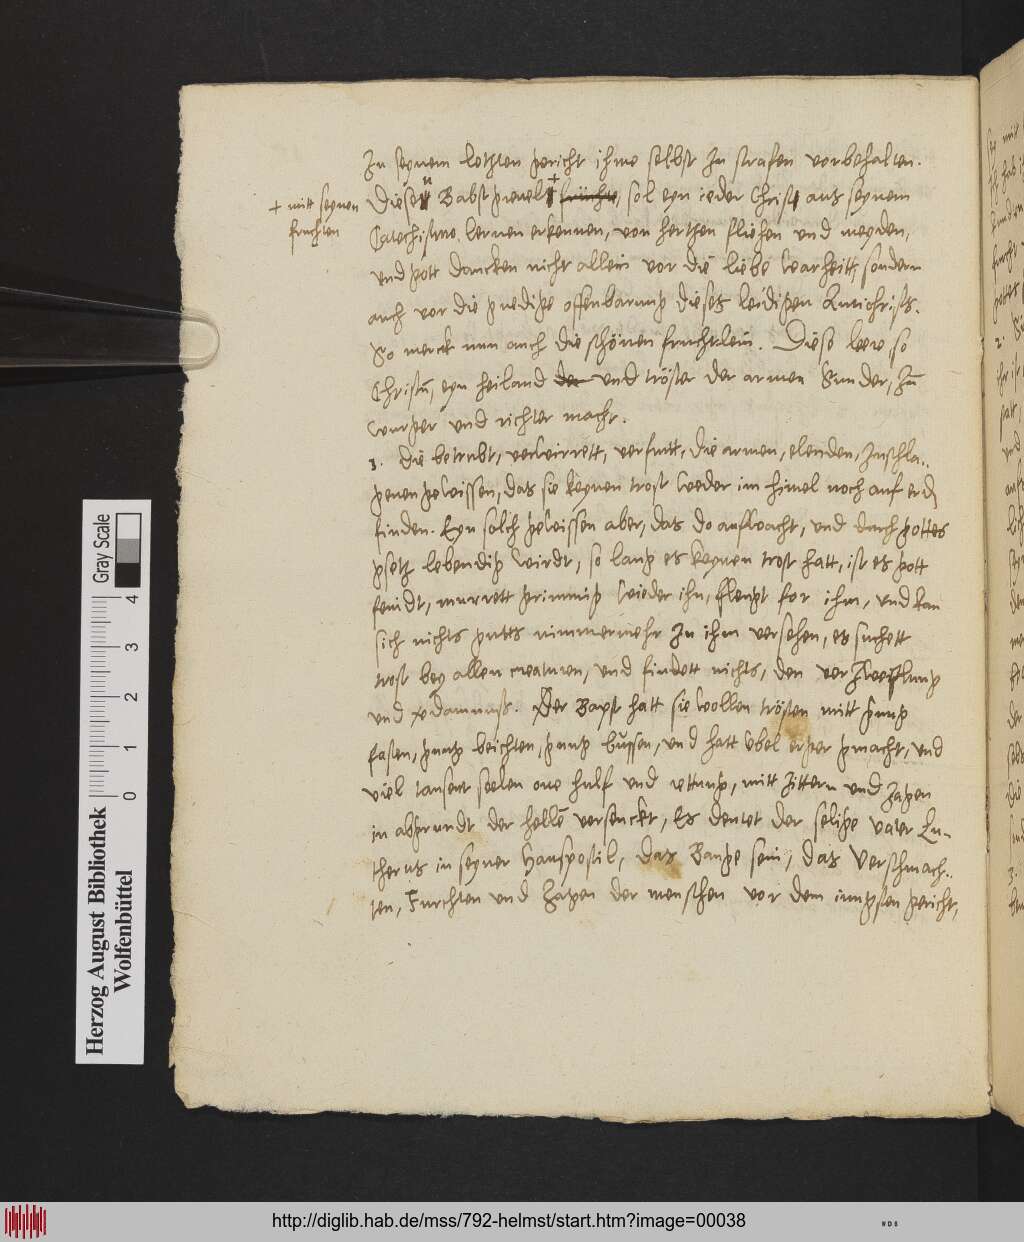 In seynem letzten gericht ihme selbst zu strafen vorbehalten.
+ mitt seynen
fruchten
Diesen Babst grewel + früchte, sol eyn ieder Christ aus seynem
Catechismo lernen erkennen, von hertzen fliehen und meyden,
und gott dancken nicht allein vor die liebe warheitt, sondern
auch vor die gnedige offenbarung dieses leidigen Antichrists.
So merck nun auch die schönen fruchtlein. Diese leere, so
Christum, eyn heiland der und tröster der armen Sunder, zum
wurger und richter macht.
3. Die betrubt, verwirrett, verfurtt, die armen, elenden, zuschla..
genen gewissen, das sie keynen trost weder im himel noch auf erden
finden. Eyn solch gewissen aber, das do aufwacht, und durch gottes
gsetz lebendig wirdt, so lang es keynen trost hatt, ist es gott
feindt, murrett grimmig wieder ihn, fleugt for ihm, und kan
sich nichts gutts nimmermehr zu ihm versehen, es suchett
trost bey allen creaturen, und findett nichts, den verzweiflung
und verdamnuß. Der Bapst hatt sie wollen trösten mitt gnug
fasten, gnug beichten, gnug büssen, und hatt ubel erger gmacht, und
viel tausent seelen one hulf und rettung, mitt zittern und zagen
in abgrundt der hellen versenckt, Es deutet der selige vater Lu-
therus in seyner Hauspostil, das Bange sein, das Verschmach..
ten, Furchten und Zagen der menschen vor dem iungsten gericht,
Herzog August Bibliothek
Wolfenbüttel
Gray Scale
0 1 2 3 4
http://diglib.hab.de/mss/792-helmst/start.htm?image=00038
WDB